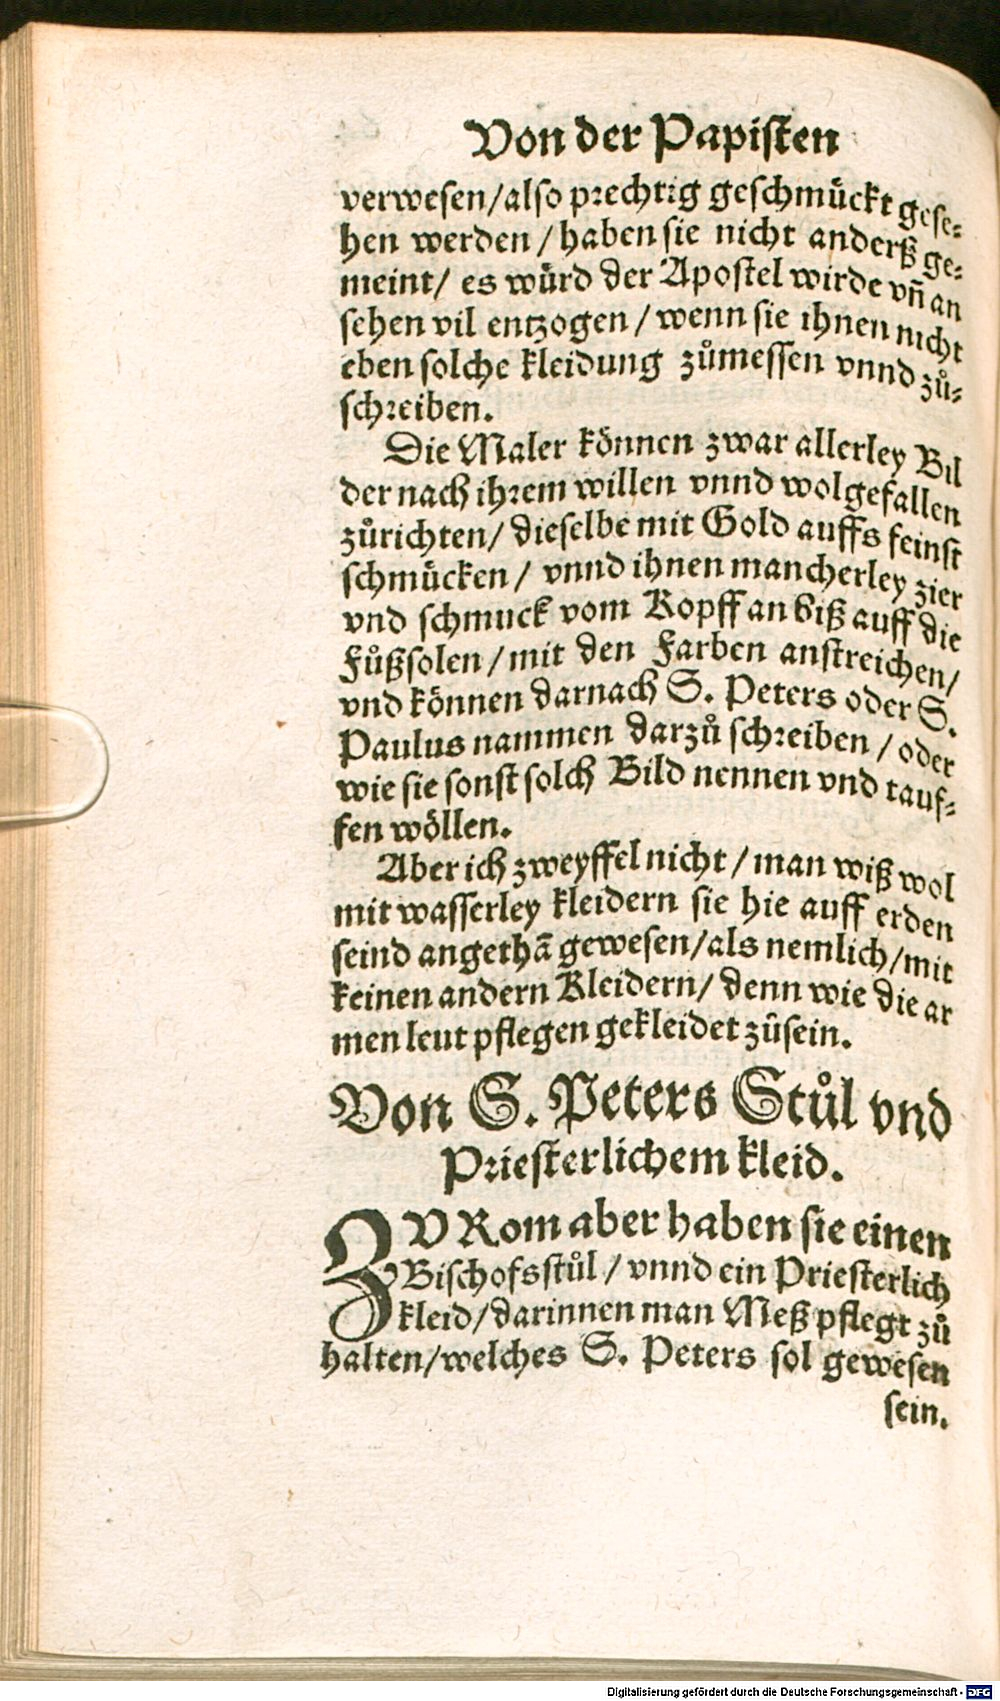 Von der Papisten
verwesen/also prechtig geschmückt gese-
hen werden/haben sie nicht anderß ge-
meint/ es würd der Apostel wirde vñ an
sehen vil entzogen/wenn sie ihnen nicht
eben solche kleidung zůmessen vnnd zů-
schreiben.
Die Maler können zwar allerley Bil
der nach ihrem willen vnnd wolgefallen
zůrichten/ dieselbe mit Gold auffs feinst
schmücken/ vnnd ihnen mancherley zier
vnd schmuck vom Kopff an biß auff die
Fůßsolen/mit den Farben anstreichen/
vnd können darnach S. Peters oder S.
Paulus nammen darzů schreiben/oder
wie sie sonst solch Bild nennen vnd tauf-
fen wöllen.
Aber ich zweyffel nicht/man wiß wol
mit wasserley kleidern sie hie auff erden
seind angethā gewesen/als nemlich/mit
keinen andern Kleidern/ denn wie die ar
men leut pflegen gekleidet zůsein.
Von S. Peters Stůl vnd
Priesterlichem kleid.
ZV Rom aber haben sie einen
Bischofsstůl/ vnnd ein Priesterlich
kleid/darinnen man Meß pflegt zů
halten/welches S. Peters sol gewesen
sein.
Digitalisierung gefördert durch die Deutsche Forschungsgemeinschaft - DFG